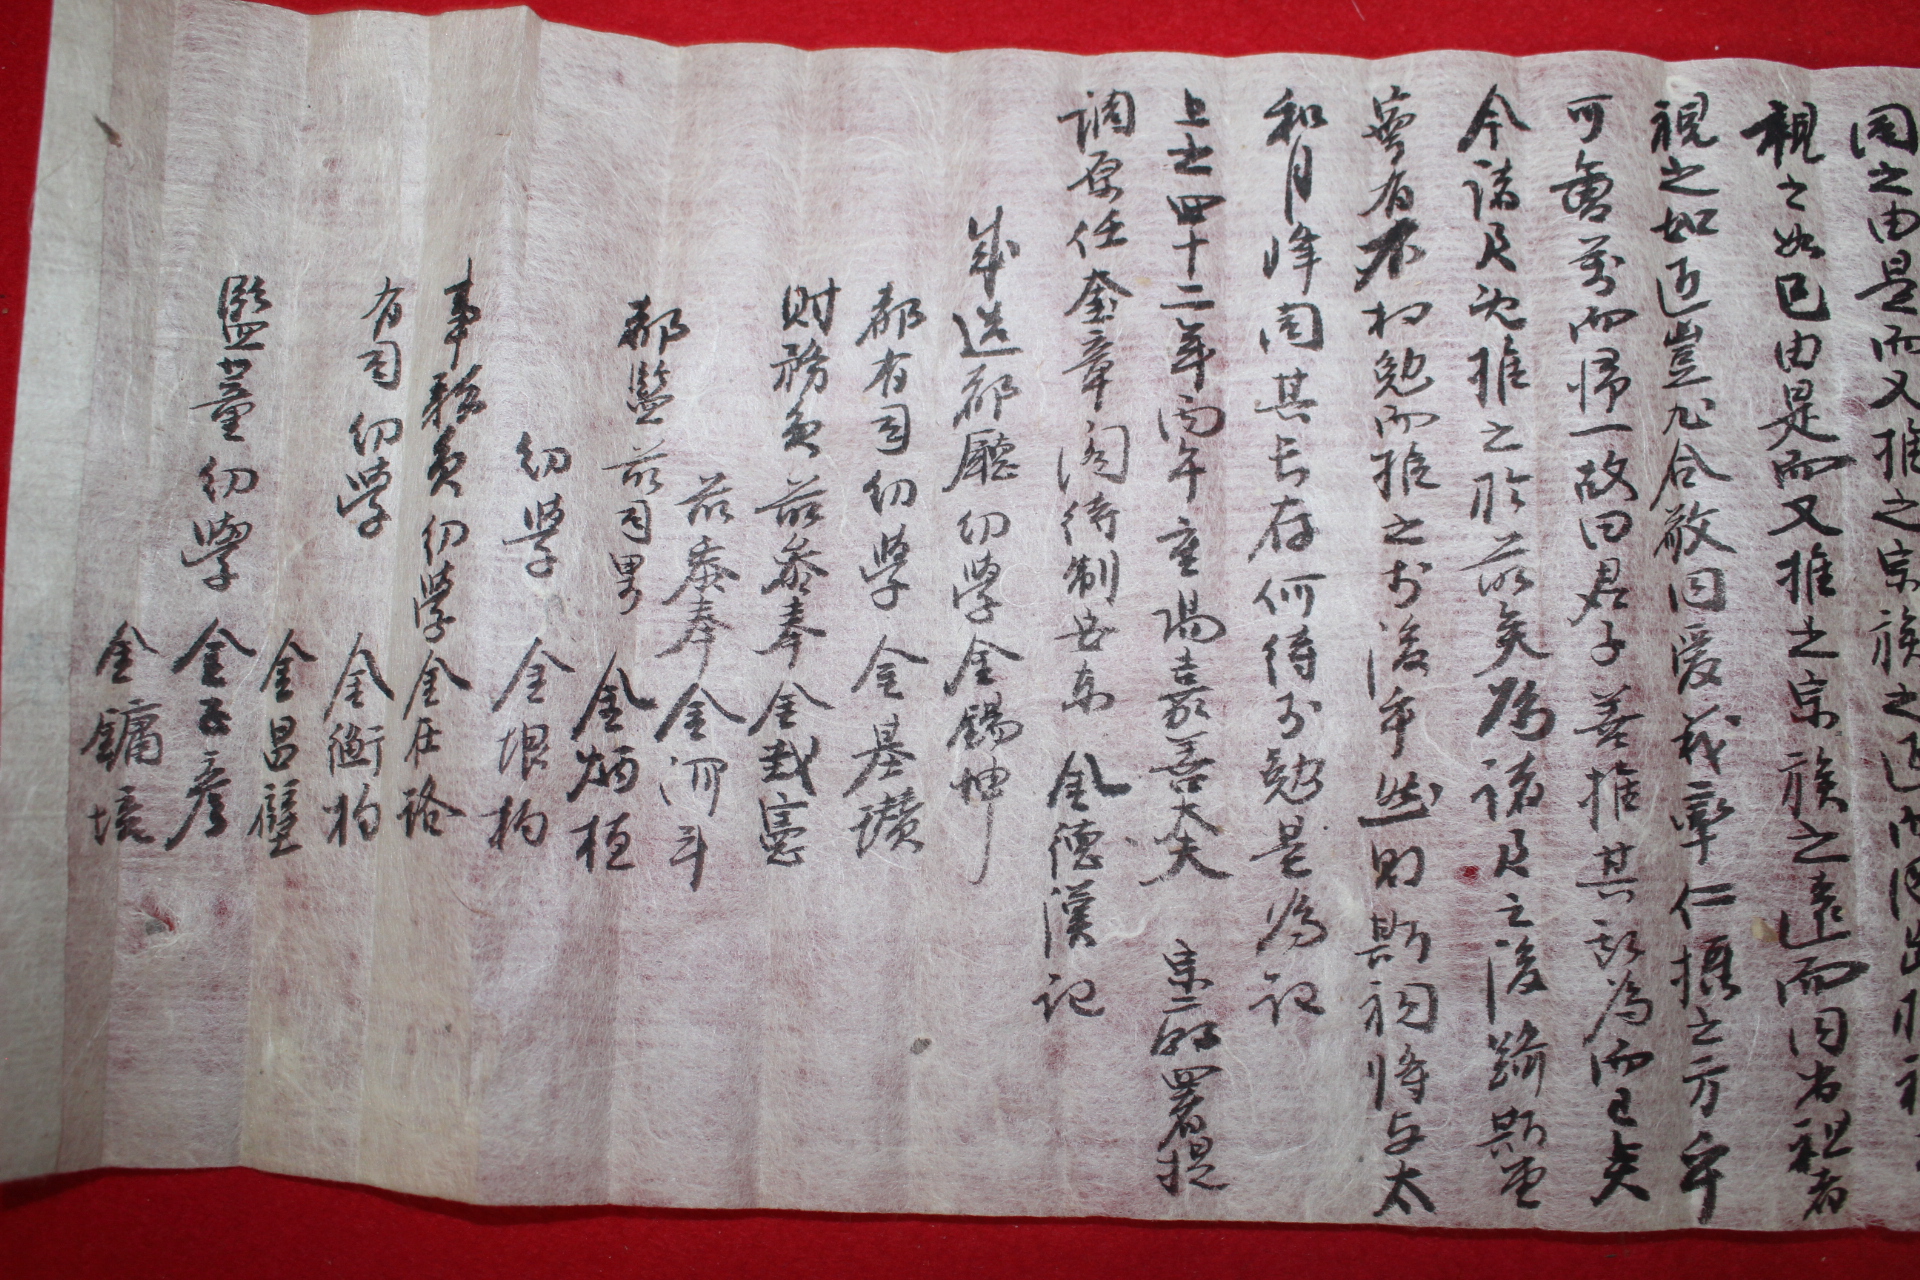 同之由是而又推之宗族之近而同出於祖
親之如己由是而又推之宗族之遠而同出祖者
視之如近豈不合敬同愛義率仁推之方乎
可會万而帰一故曰君子善推其所為而已矣
今諸君既推之於前矣為諸君之後躋斯堂
者不相勉而推之於後乎然則斯祠將与太
和月峰同其長存何待余勉是為記
上之四十二年丙午重陽嘉善大夫 東二郞署提
調原任奎章閣待制安東 金德漢記
成造都廳幼學金錫坤
都有司幼學 金基瓚
財務員前參奉金載憲
前參奉金河斗
都監前司男 金炳桓
幼學 金垠构
事務員幼學金在珞
有司幼學 金衡构
金昌璧
監董幼學 金彦
金鏞境